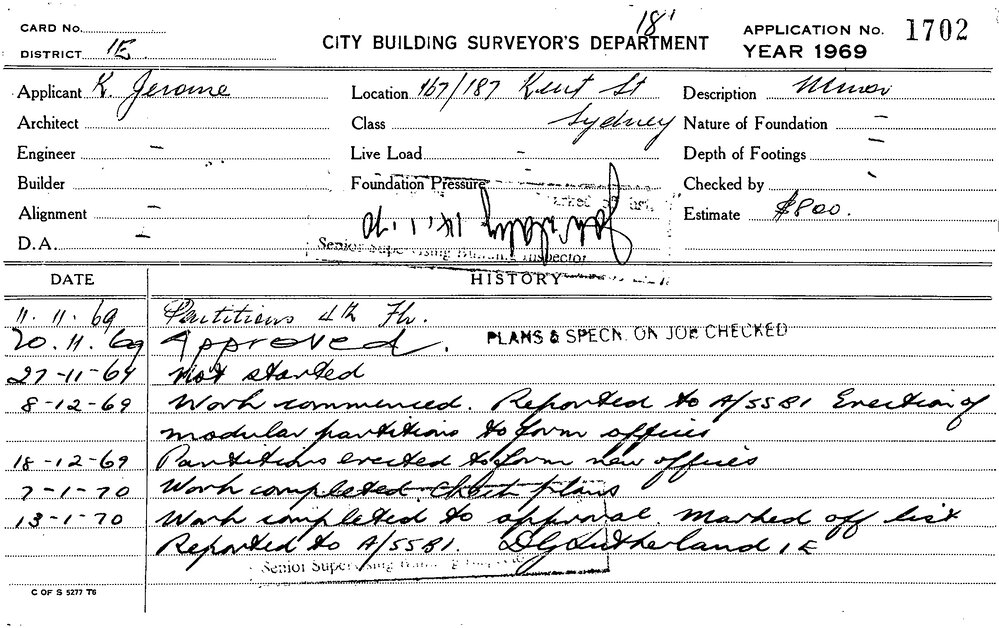 18'
CARD No.
DISTRICT 1E
CITY BUILDING SURVEYOR'S DEPARTMENT
APPLICATION No. 1702
YEAR 1969
Applicant K. Jerome
Location 167/187 Kent St
Sydney
Description Minor
Architect
Class
Nature of Foundation –
Engineer –
Live Load –
Depth of Footings –
Builder
Foundation Pressure
Checked by -
Alignment –
Estimate $800.
D.A. –
14.1.70
Senior Supervising Building Inspector
DATE HISTORY
11.11.69 Partitions 4th Flr.
20.11.69 Approved. PLANS & SPECN. ON JOB CHECKED
27-11-69 Not started
8-12-69 Work commenced. Reported to A/SSBI Erection of
modular partitions to form offices
18-12-69 Partitions erected to form new offices
7-1-70 Work completed. Check plans
13-1-70 Work completed to approval. Marked off list
Reported to A/SSBI. DG Sutherland 1E
Senior Supervising Building Inspector
C OF S 5277 T6